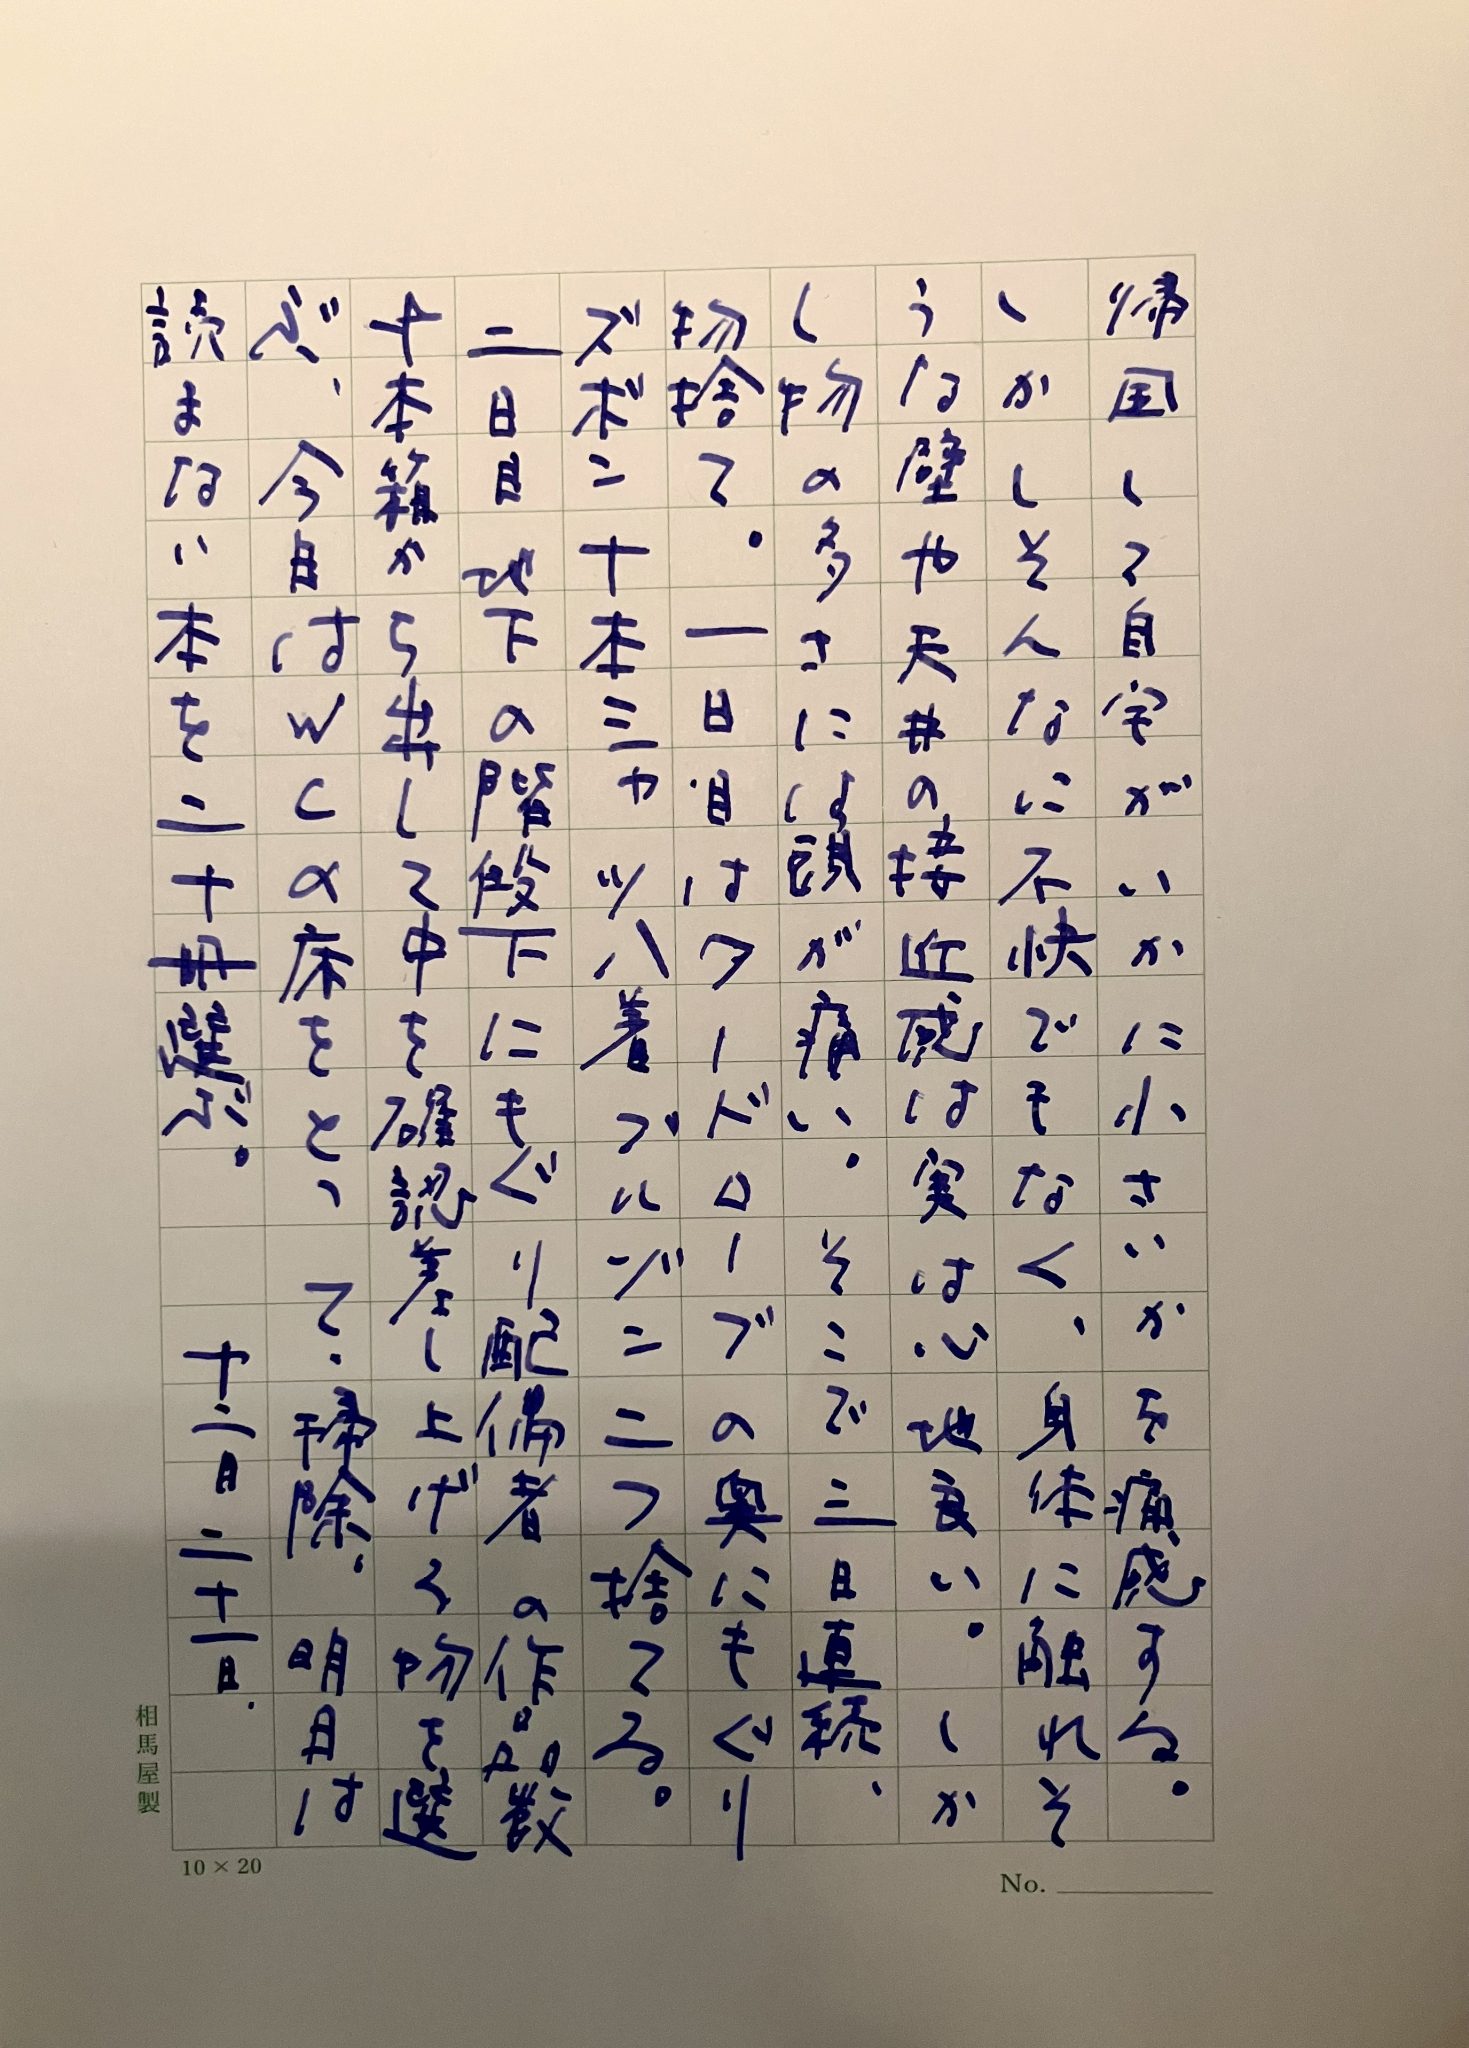 帰国して自宅がいかに小さいかを痛感する。
しかしそんなに不快でもなく、身体に触れそ
うな壁や天井の接近感は実は心地良い。しか
し物の多さには頭が痛い。そこで三日連続、
物捨て。一日目はワードローブの奥にもぐり
ズボン十本シャツ八着ブルゾン二つ捨てる。
二日目地下の階段下にもぐり配偶者の作品数
十本箱から出して中を確認差し上げる物を選
ぶ、今日はWCの床をとって掃除、明日は
読まない本を二十冊選ぶ。 十二月二十一日.
相馬屋製
10 × 20
No.